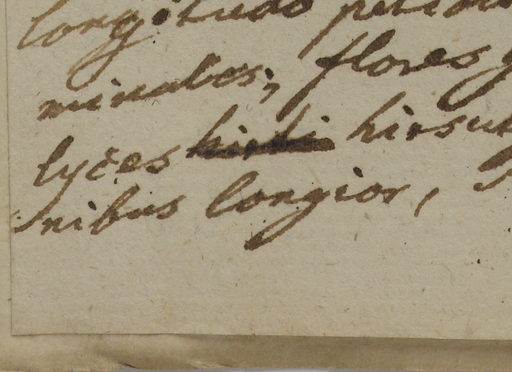 longitudo petio
minales; flores
lyces hirti hirsut
nibus longior,